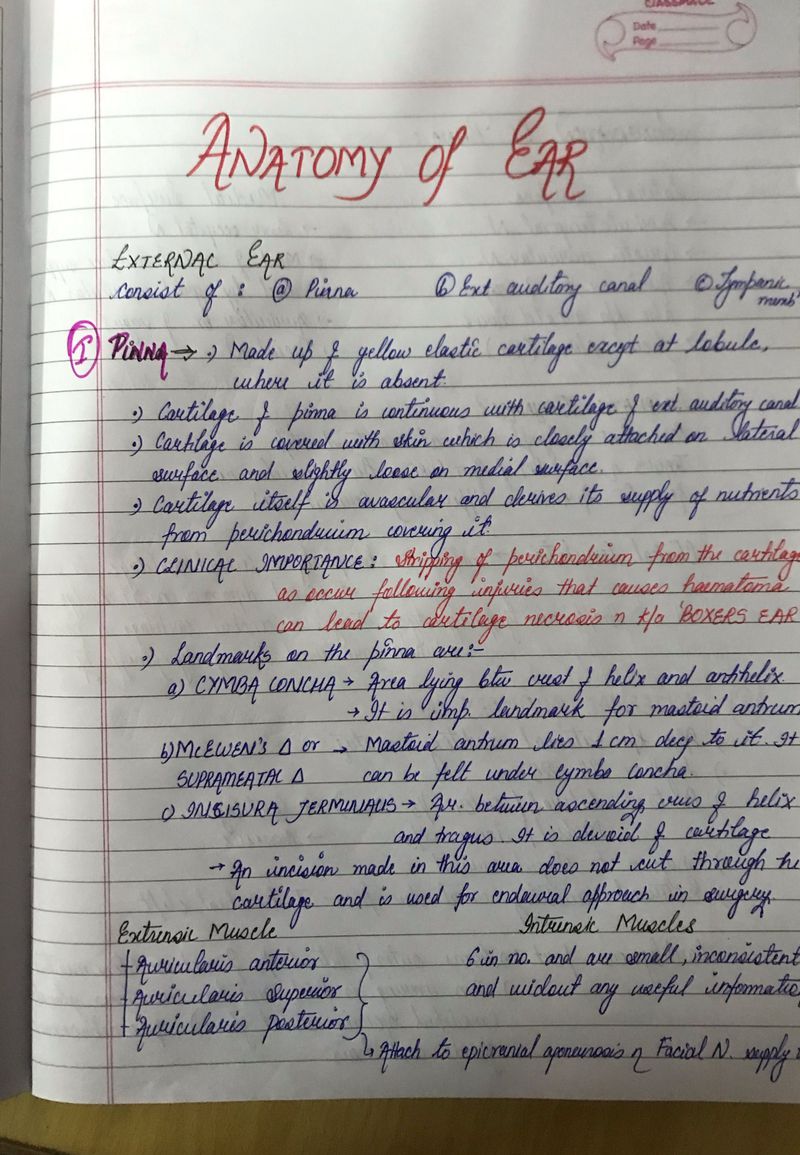 CLASSMATE
Date
Page
ANATOMY of EAR
EXTERNAL EAR
consist of : ⓐ Pinna ⓑ Ext auditory canal ⓒ Tympanic
memb
Ⓘ PINNA → •) Made up of yellow elastic cartilage except at lobule,
where it is absent.
•) Cartilage of pinna is continuous with cartilage of ext. auditory canal
•) Cartilage is covered with skin which is closely attached on lateral
surface and slightly loose on medial surface.
•) Cartilage itself is avascular and derives its supply of nutrients
from perichondrium covering it.
•) CLINICAL IMPORTANCE : Stripping of perichondrium from the cartilage
as occur following injuries that causes haematoma
can lead to cartilage necrosis n k/a 'BOXERS EAR
•) Landmarks on the pinna are:-
a) CYMBA CONCHA → Area lying btw crust of helix and antihelix.
→ It is imp. landmark for mastoid antrum
b) McEWEN'S Δ or → Mastoid antrum lies 1 cm deep to it. It
SUPRAMEATAL Δ can be felt under cymba concha.
c) INCISURA TERMINALIS → Ar. between ascending crus of helix
and tragus. It is devoid of cartilage
→ An incision made in this area does not cut through the
cartilage and is used for endaural approach in surgery.
Extrinsic Muscle Intrinsic Muscles
Auricularis anterior 6 in no. and are small, inconsistent
Auricularis superior and widout any useful informatio
Auricularis posterior
↳ Attach to epicranial aponeurosis n Facial N. supply